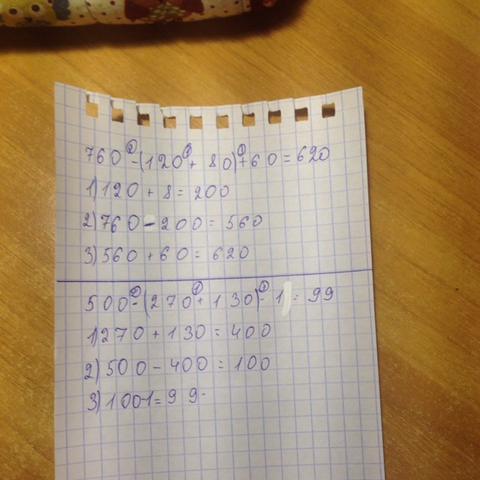 760-(120+80)+60=620
1)120+8=200
2)760-200=560
3)560+60=620
500-(270+130)-1=99
1)270+130=400
2)500-400=100
3)100-1=99